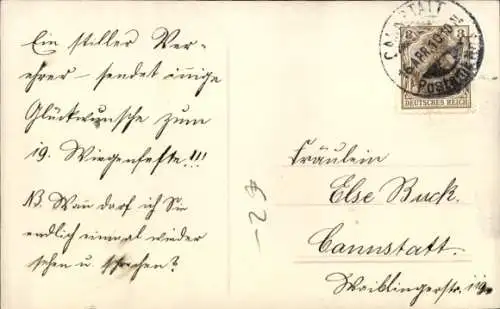 Ein stiller Ver-
ehrer – sendet innige
Glückwünsche zum
19. Wiegenfeste!!!
NB. Wan darf ich Sie
endlich einmal wieder
sehen u. sprechen?
CANNSTATT
APR. 10
Postamt
3 3
DEUTSCHES REICH
Fräulein
Else Buck.
Cannstatt.
Waiblingerstr. 119.